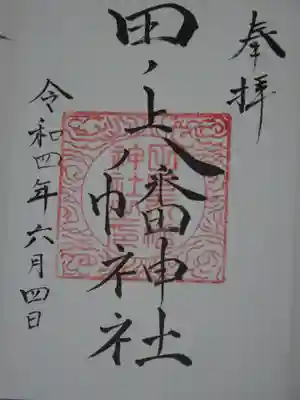 奉拝
田ノ上八幡神社
令和四年六月四日